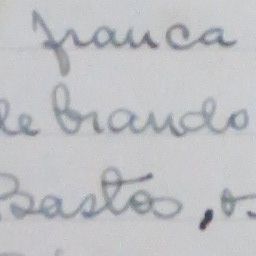 franca
le brando
Bastos,